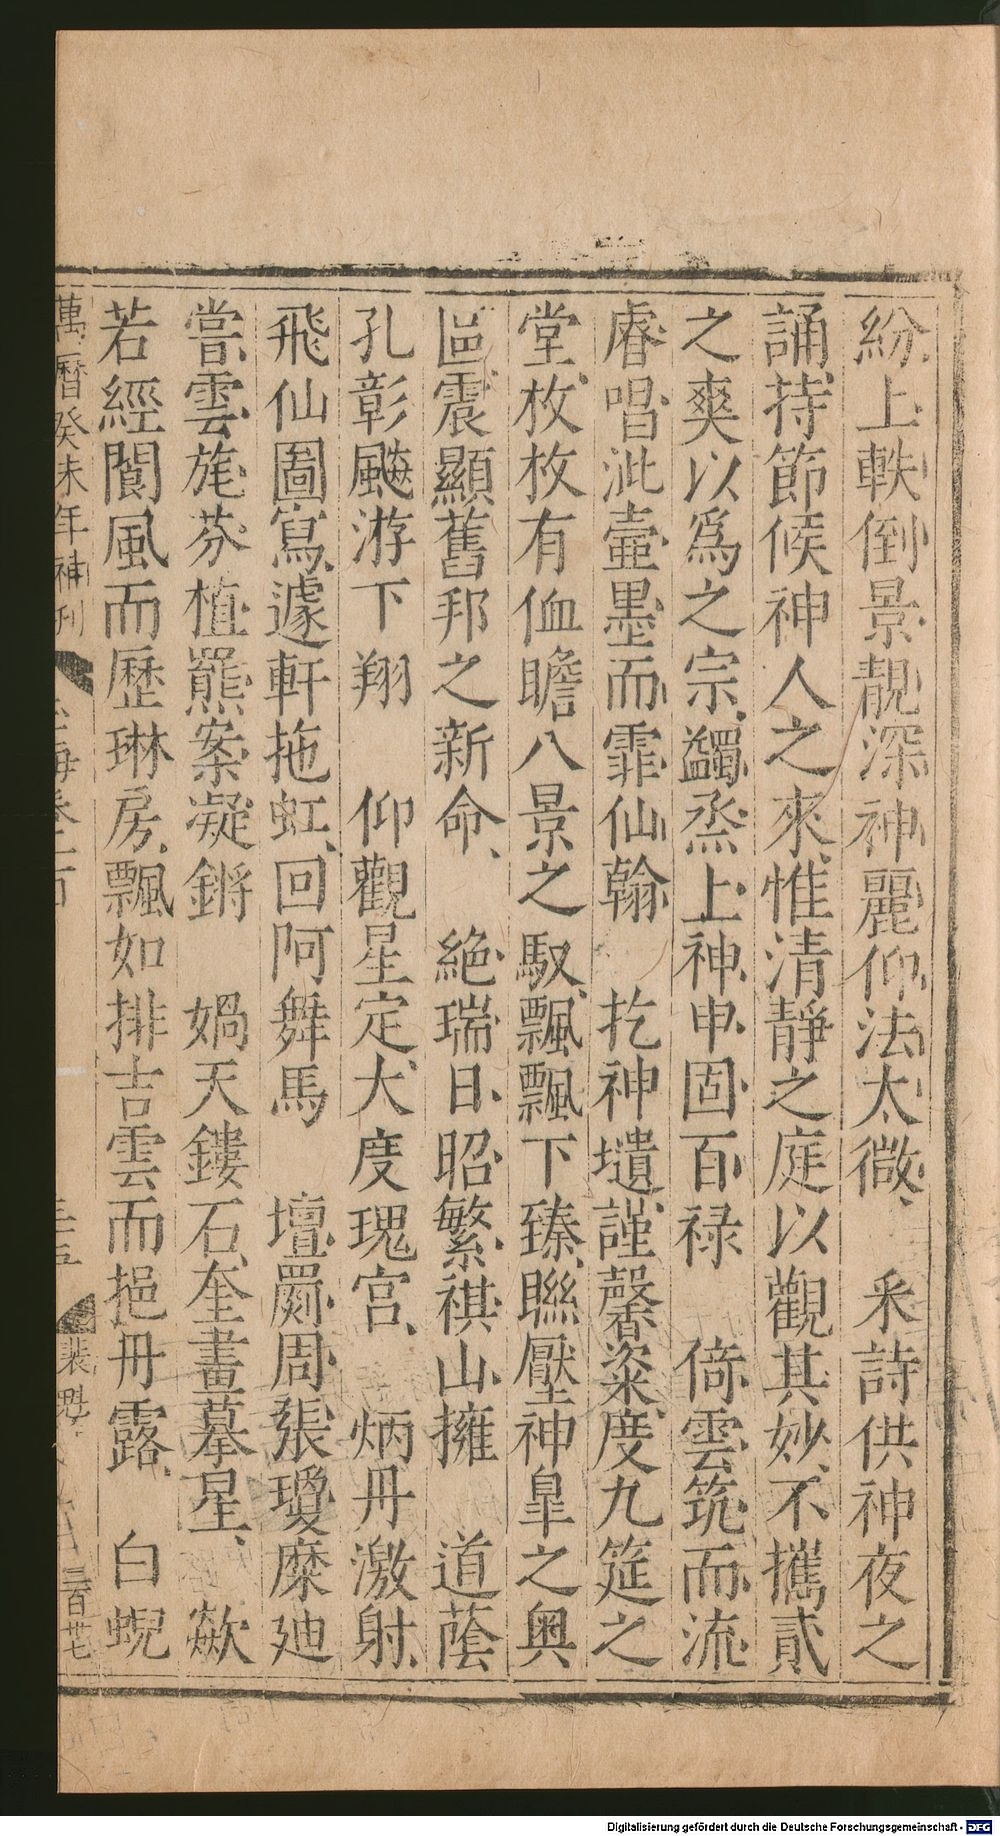 紛上軼倒景靚深神麗仰法太微、　釆詩供神夜之
誦、持節候神人之來、惟清靜之庭以觀其妙、不攜貳
之爽以爲之宗、蠲烝上神、申固百禄　倚雲筑而流
睿唱泚壼墨而霏仙翰　扢神壝、謹馨粢、度九筵之
堂、枚枚有侐瞻八景之馭、飄飄下臻、聯壓神皐之奥
區震顯舊邦之新命、　絶瑞日、昭繁祺山、擁　道蔭
孔彰飈游下翔　仰觀星定、大度瑰宫、　炳丹激射、
飛仙圖寫、遽軒拖虹、回阿舞馬　壇罽周張瓊糜廸
嘗、雲旄芬植羆案凝鏘　媧天鏤石、奎畫摹星、　歘
若經閬風而歷琳房、飄如排吉雲而挹丹露、　白蜺
萬曆癸未年補刊
玉海卷一百
三五
裴魁
三百卅七
Digitalisierung gefördert durch die Deutsche Forschungsgemeinschaft - DFG